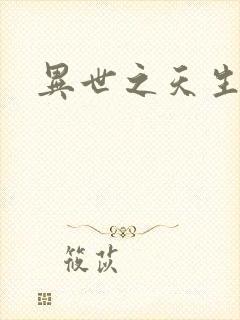 異世之天生
筱苡